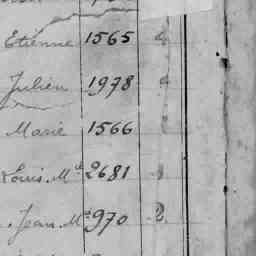 Etienne 1565
Julien 1978
Marie 1566
Louis. Mie 2681
Jean. Mie 970 2